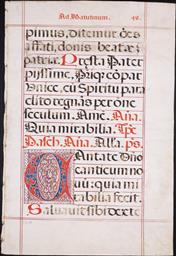 Ad Matutinum. 49.
pimus, Ditemur oēs
affati, donis beatae
patriae. Presta Pater
piissime, Patriq; cōpar
Unice, cū Spiritu para
clito regnās per ōne
seculum. Amē. Aña.
Quia mirabilia. Tpe
Pasch. Aña. Alla. ps.
Cantate Dño
canticum no
vū: quia mi
rabilia fecit.
Salvavit sibi dexte